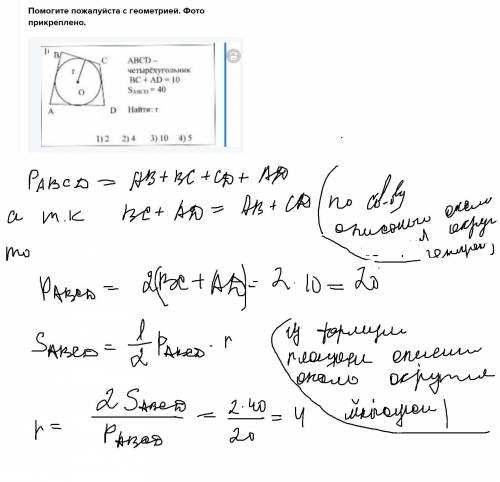 Помогите пожалуйста с геометрией. Фото
прикреплено.
B
C
r
O
A
D
ABCD –
четырёхугольник
BC + AD = 10
S_ABCD = 40
Найти: r
1) 2 2) 4 3) 10 4) 5
P_ABCD = AB + BC + CD + AD
а т.к BC + AD = AB + CD (по св-ву
около
то
P_ABCD = 2(BC + AD) = 2·10 = 20
S_ABCD = 1/2 P_ABCD · r
(из формулы
площади
около
r = 2S_ABCD / P_ABCD = 2·40 / 20 = 4